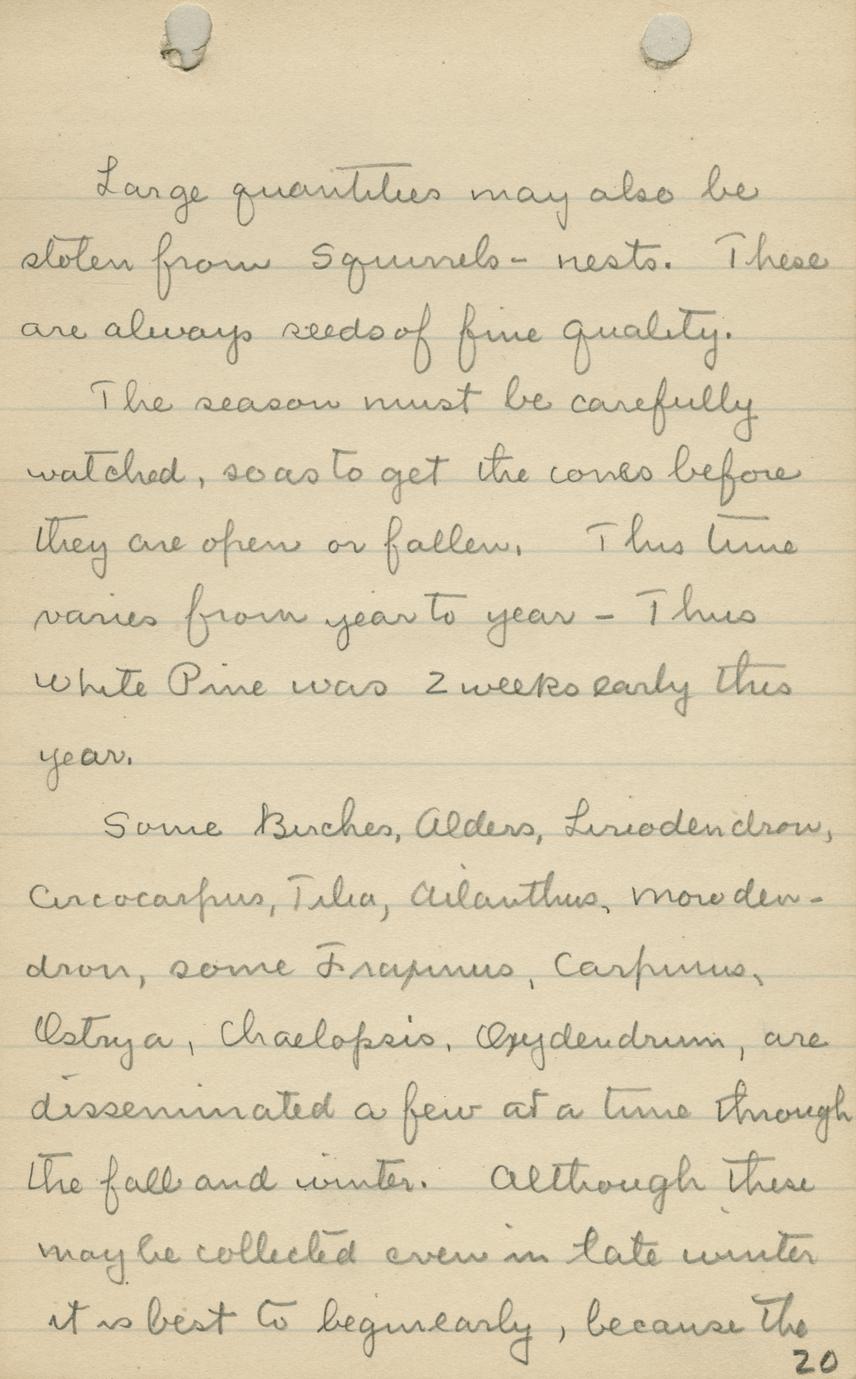 Large quantities may also be
stolen from Squirrels - nests. These
are always seeds of fine quality.
The season must be carefully
watched, so as to get the cones before
they are open or fallen. This time
varies from year to year - Thus
White Pine was 2 weeks early this
year.
Some Birches, Alders, Liriodendron,
Circocarpus, Tilia, Ailanthus, Mowden-
dron, some Fraxinus, Carpinus,
Ostrya, Chaelopsis, Oxydendrum, are
disseminated a few at a time through
the fall and winter. Although these
may be collected even in late winter
it is best to begin early, because the
20